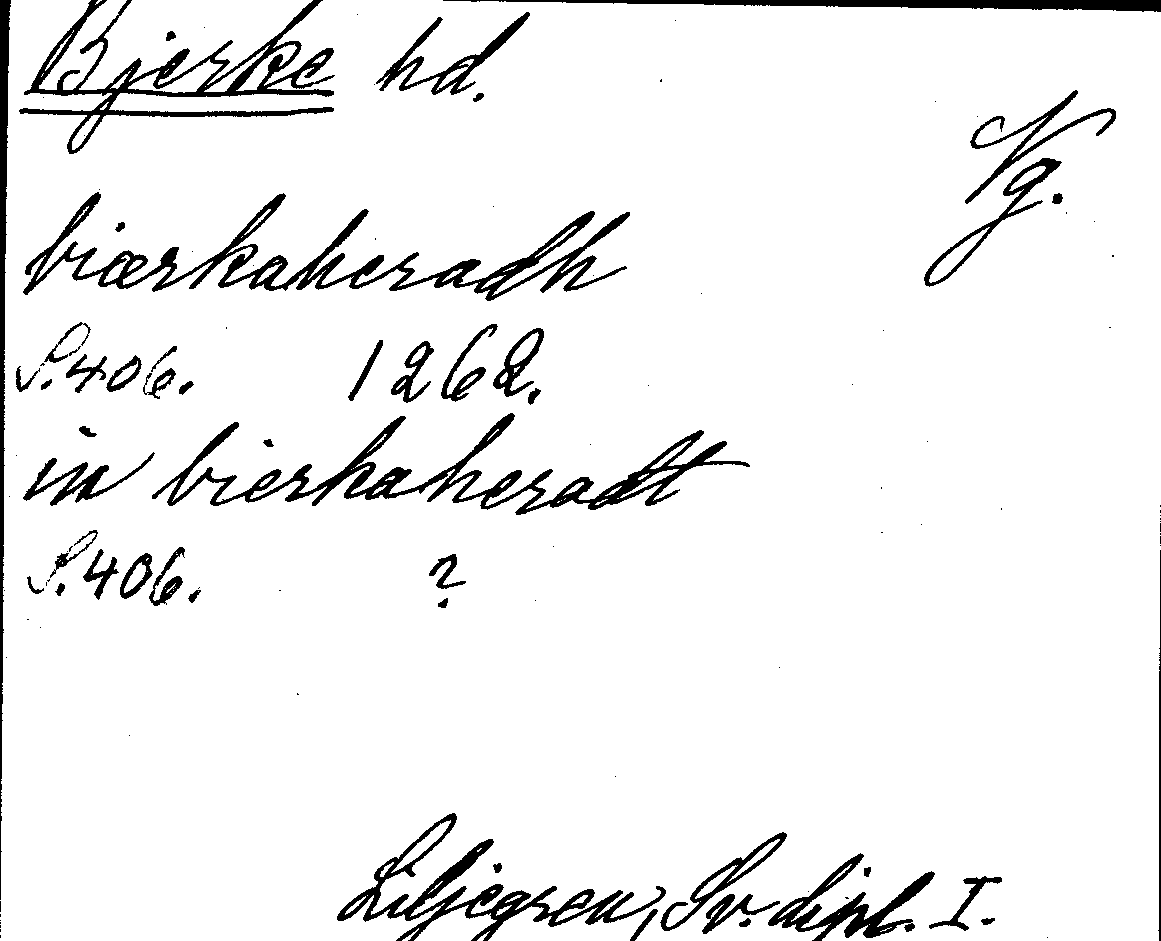 Bjerke hd.
Vg.
biærkaheradh
S.406. 1262.
in bierkaheradt
S.406. ?
Liljegren, Sv. dipl. I.